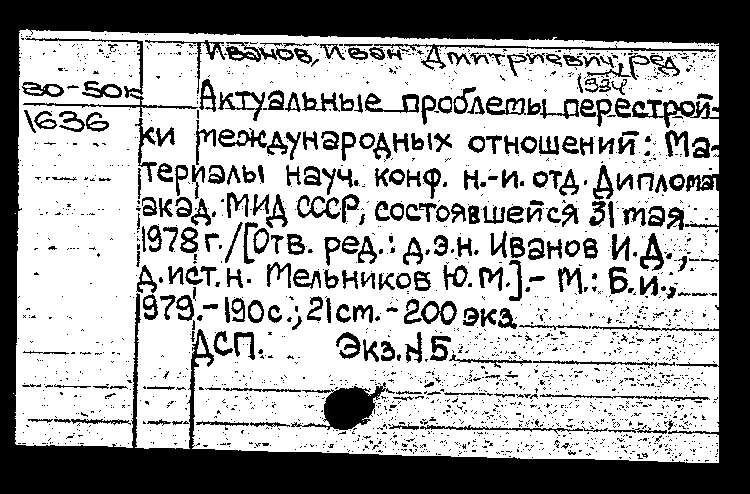 Иванов, Иван Дмитриевич, ред.
1934
80-50к
Актуальные проблемы перестрой-
1636
ки международных отношений: Ма-
териалы науч. конф. н.-и. отд. Дипломат
акад. МИД СССР, состоявшейся 31 мая
1978 г. / [Отв. ред.: д.э.н. Иванов И.Д.,
д.ист.н. Мельников Ю.М.].- М.: Б.и.,
1979.-190с.; 21ст.-200 экз.
ДСП. Экз.N.Б.